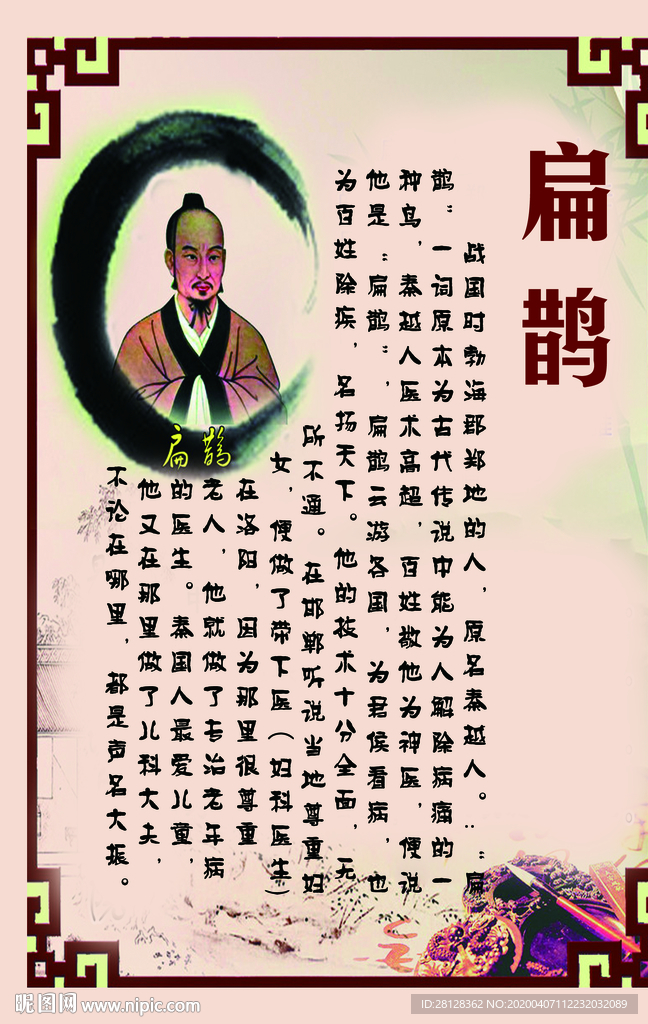 扁鹊
战国时勃海郡郑地的人，原名秦越人。..“扁
鹊”一词原本为古代传说中能为人解除病痛的一
种鸟，秦越人医术高超，百姓敬他为神医，便说
他是“扁鹊”，扁鹊云游各国，为君侯看病，也
为百姓除疾，名扬天下。他的技术十分全面，无
所不通。在邯郸听说当地尊重妇
女，便做了带下医（妇科医生）
在洛阳，因为那里很尊重
老人，他就做了专治老年病
的医生。秦国人最爱儿童，
他又在那里做了儿科大夫，
不论在哪里，都是声名大振。
扁鹊
昵图网 www.nipic.com
ID:28128362 NO:20200407112232032089